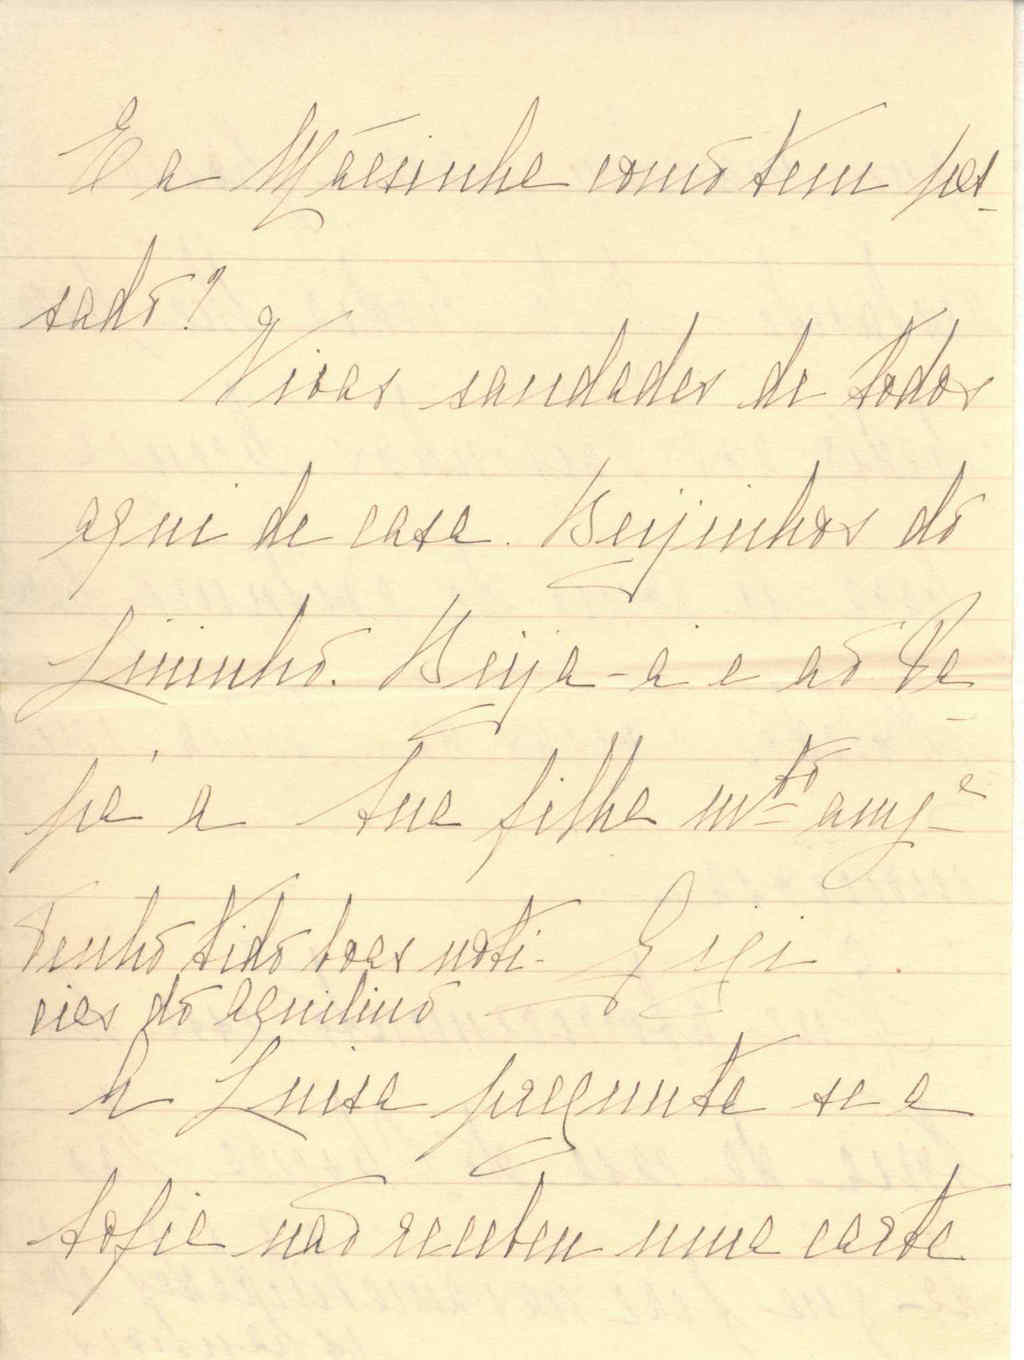 E a Mãesinha como tem pas-
sado?
Vivas saudades de todos
aqui de casa. Beijinhos do
Lininho. Beija-a e ao Pa-
pá a sua filha mto amga
Tenho tido boas noti- Gigi
cias do Aquilino
A Luisa pregunta se a
Sofia não recebeu uma carta